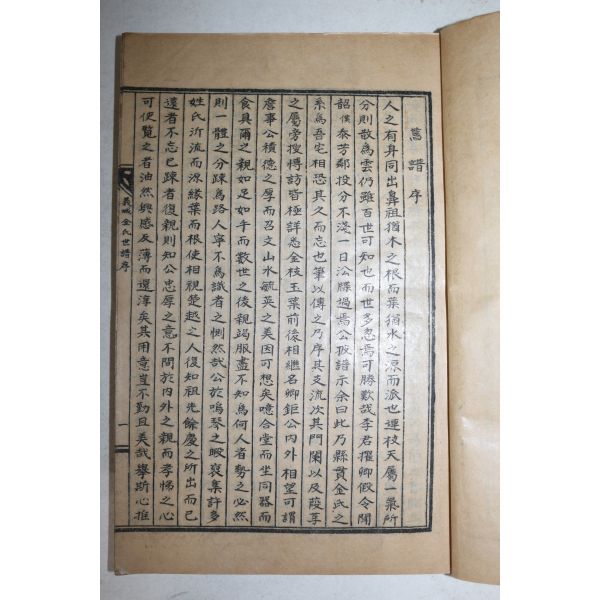 舊譜序
人之有身同出鼻祖猶木之根而葉猶水之源而派也連枝天屬一氣所
分則散為雲仍雖百世可知也而世多忽焉可勝歎哉李君擢卿假令聞
韶僕忝芳鄰投分不淺一日公牒過焉公披譜示余曰此乃縣貫金氏之
系為吾宅相恐其久而忘也筆以傳之乃序其支流次其門闌以及葭莩
之屬旁搜博訪皆極詳悉金枝玉葉前後相繼名卿鉅公內外相望可謂
詹事公積德之厚而召文山水毓英之美因可想矣噫合堂而坐同器而
食具爾之親如足如手而數世之後親竭服盡不知為何人者勢之必然
則一體之分疎為路人寧不為識者之惻然哉公於鳴琴之暇裒集許多
姓氏沂流而源緣葉而根使相視楚越之人復知祖先餘慶之所出而已
遠者不忘已疎者復親則知公忠厚之意不間於內外之親而孝悌之心
可使覽之者油然興感及薄而還淳矣其用意豈不勤且美哉擧斯心推
義城金氏世譜序
一